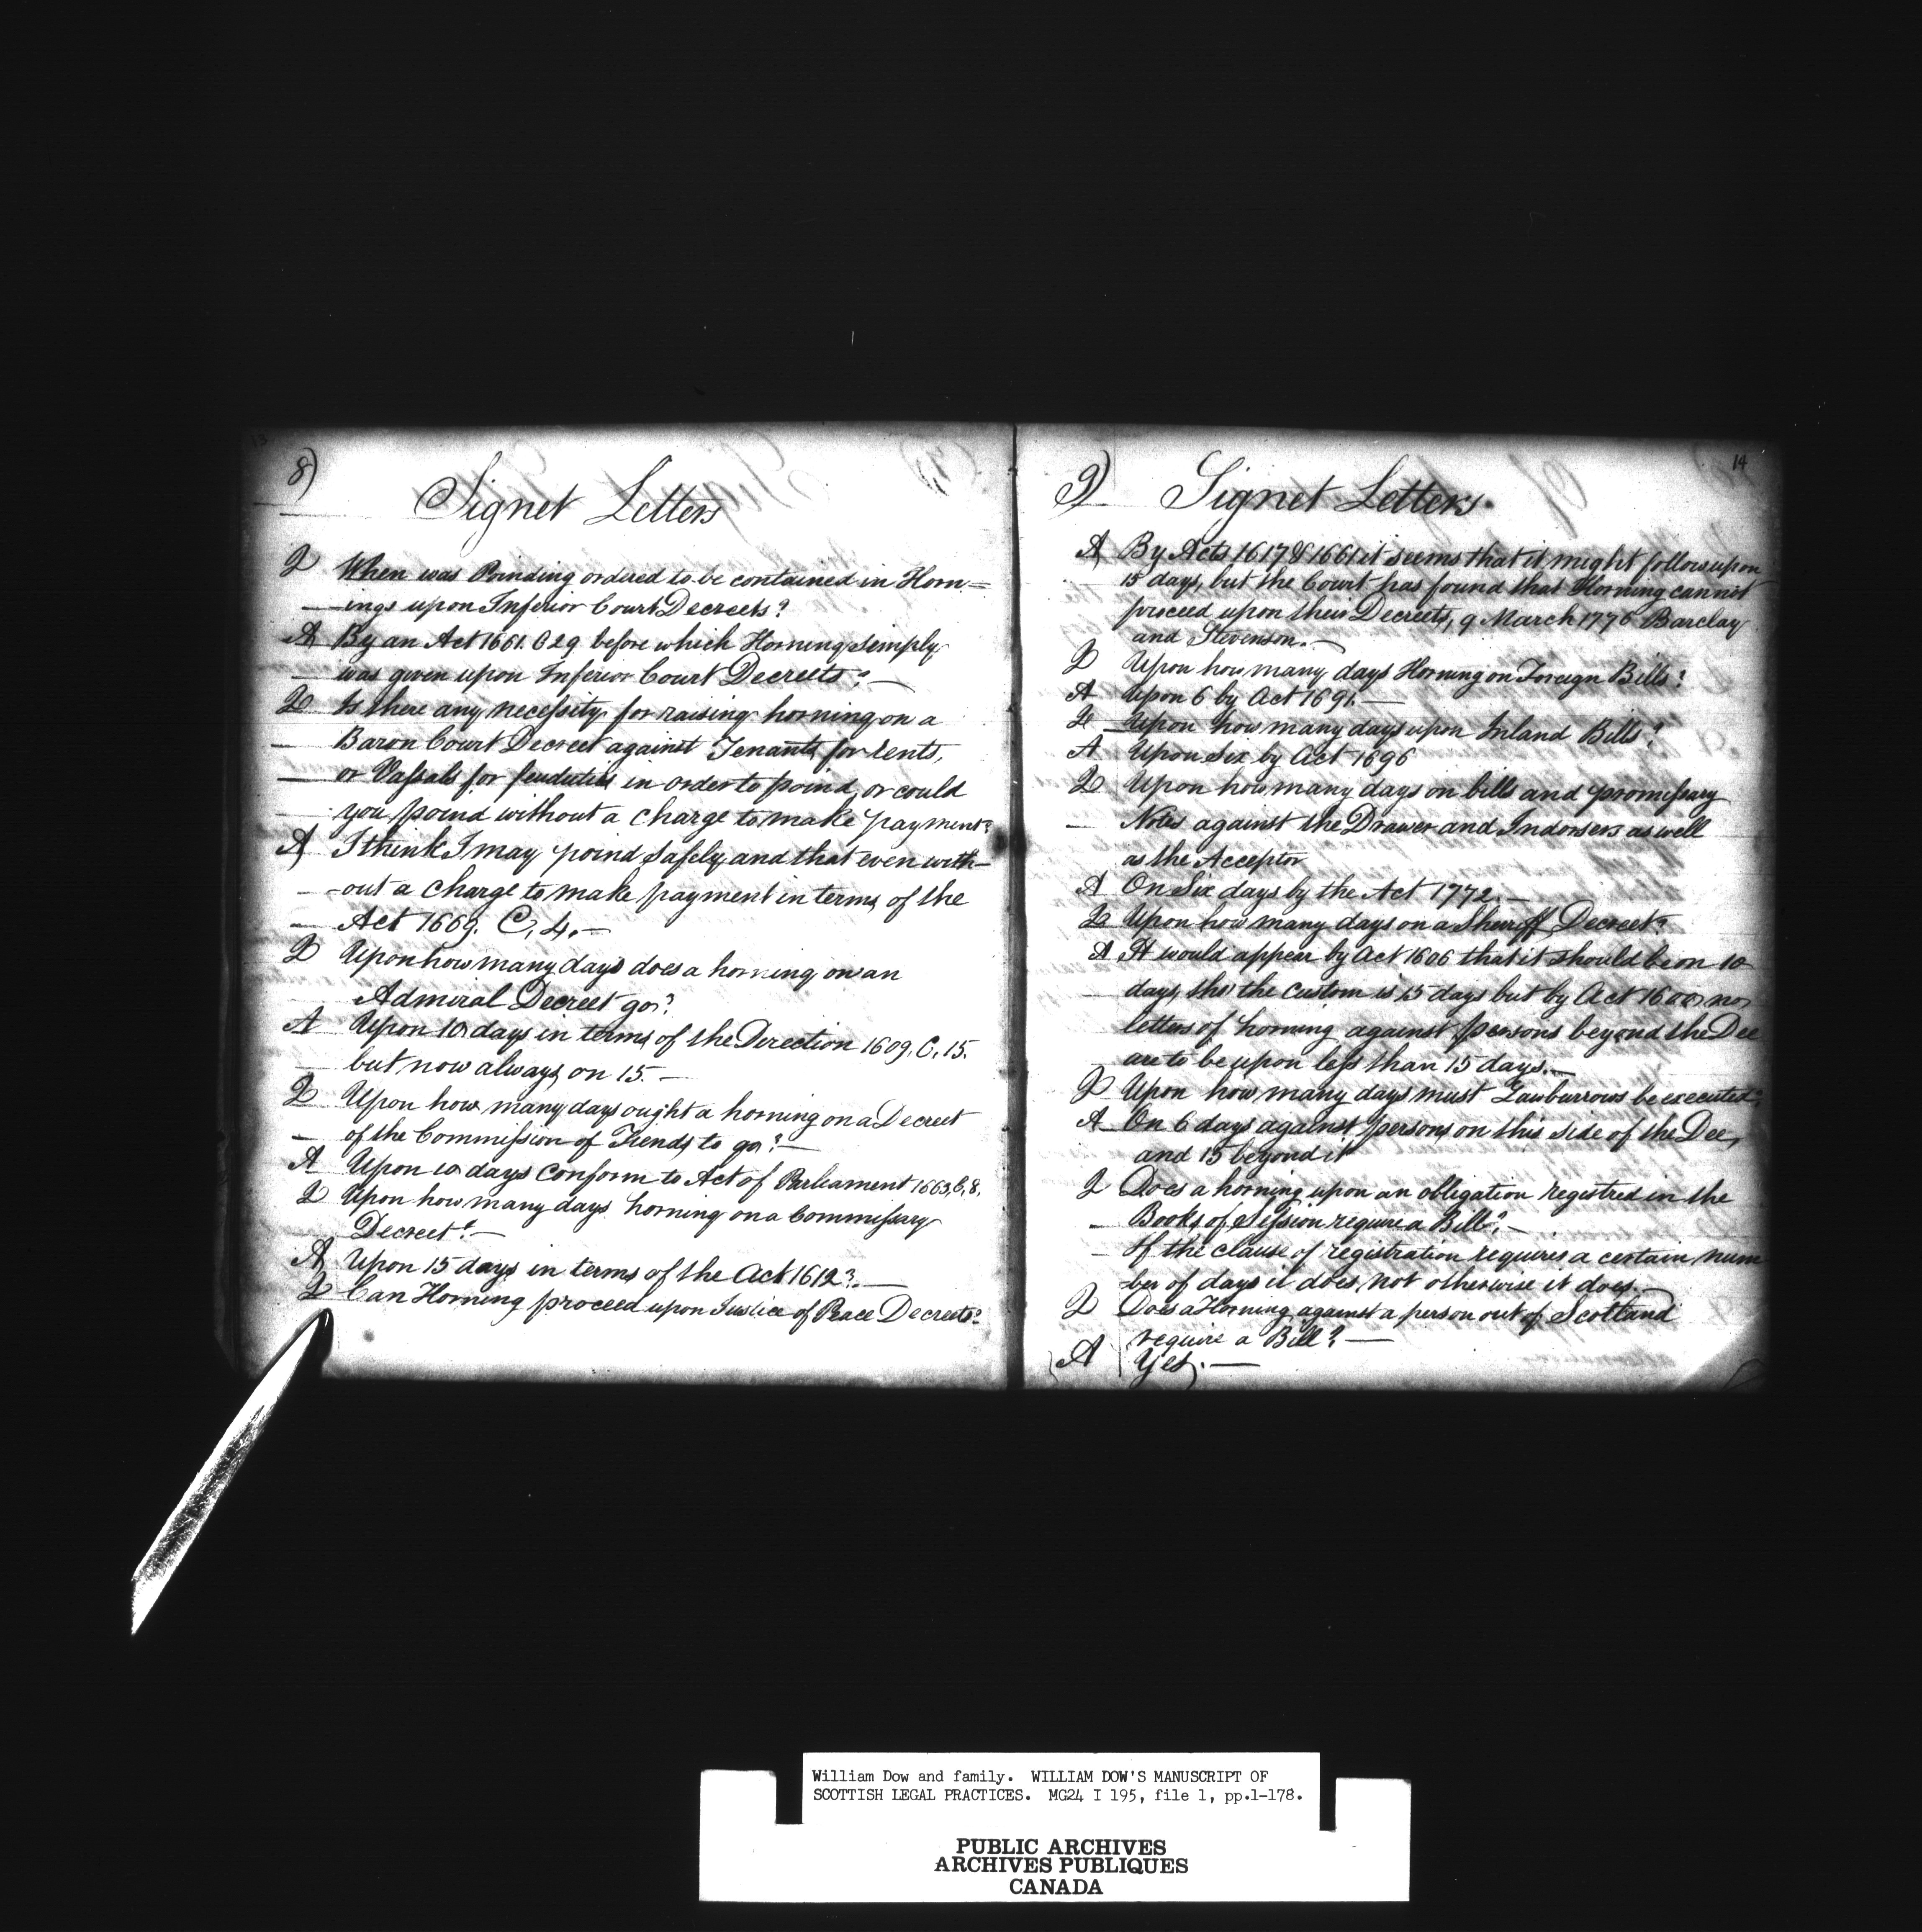 13
8)
Signet Letters
Q When was Poinding ordered to be contained in Horn=
ings upon Inferior Court Decreets?
A By an Act 1661. C 29 before which Horning simply
was given upon Inferior Court Decreets?—
Q Is there any necessity for raising horning on a
Baron Court Decreet against Tenants for rents,
or Vassals for feuduties in order to poind, or could
you poind without a charge to make payment?
A I think I may poind safely and that even with—
—out a charge to make payment in terms of the
Act 1669. C. 4.—
Q Upon how many days does a horning on an
Admiral Decreet go?
A Upon 10 days in terms of the Direction 1609. C. 15.
but now always on 15.—
Q Upon how many days ought a horning on a Decreet
of the Commission of Tiends to go?—
A Upon 10 days conform to Act of Parliament 1663, C, 8.
Q Upon how many days horning on a Commissary
Decreet?—
A Upon 15 days in terms of the Act 1612?.—
Q Can Horning proceed upon Justice of Peace Decreets?
14
9)
Signet Letters.
A By Acts 1617 & 1661 it seems that it might follow upon
15 days, but the Court has found that Horning cannot
proceed upon their Decreets, 9 March 1776 Barclay
and Stevenson.—
Q Upon how many days Horning on Foreign Bills?
A Upon 6 by Act 1691.—
Q Upon how many days upon Inland Bills?
A Upon Six by Act 1696
Q Upon how many days on bills and promissary
Notes against the Drawer and Indorsers as well
as the Acceptor
A On Six days by the Act 1772.—
Q Upon how many days on a Sheriff Decreet?
A It would appear by Act 1606 that it should be on 10
days, tho the custom is 15 days but by Act 1600 no
letters of horning against persons beyond the Dee
are to be upon less than 15 days.—
Q Upon how many days must Lawburrows be executed?
A On 6 days against persons on this side of the Dee,
and 15 beyond it
Q Does a horning upon an obligation registred in the
Books of Session require a Bill?—
If the clause of registration requires a certain num
ber of days it does, not otherwise it does.—
Q Does a Horning against a person out of Scotland
require a Bill?—
A Yes.—
William Dow and family. WILLIAM DOW'S MANUSCRIPT OF
SCOTTISH LEGAL PRACTICES. MG24 I 195, file 1, pp.1-178.
PUBLIC ARCHIVES
ARCHIVES PUBLIQUES
CANADA